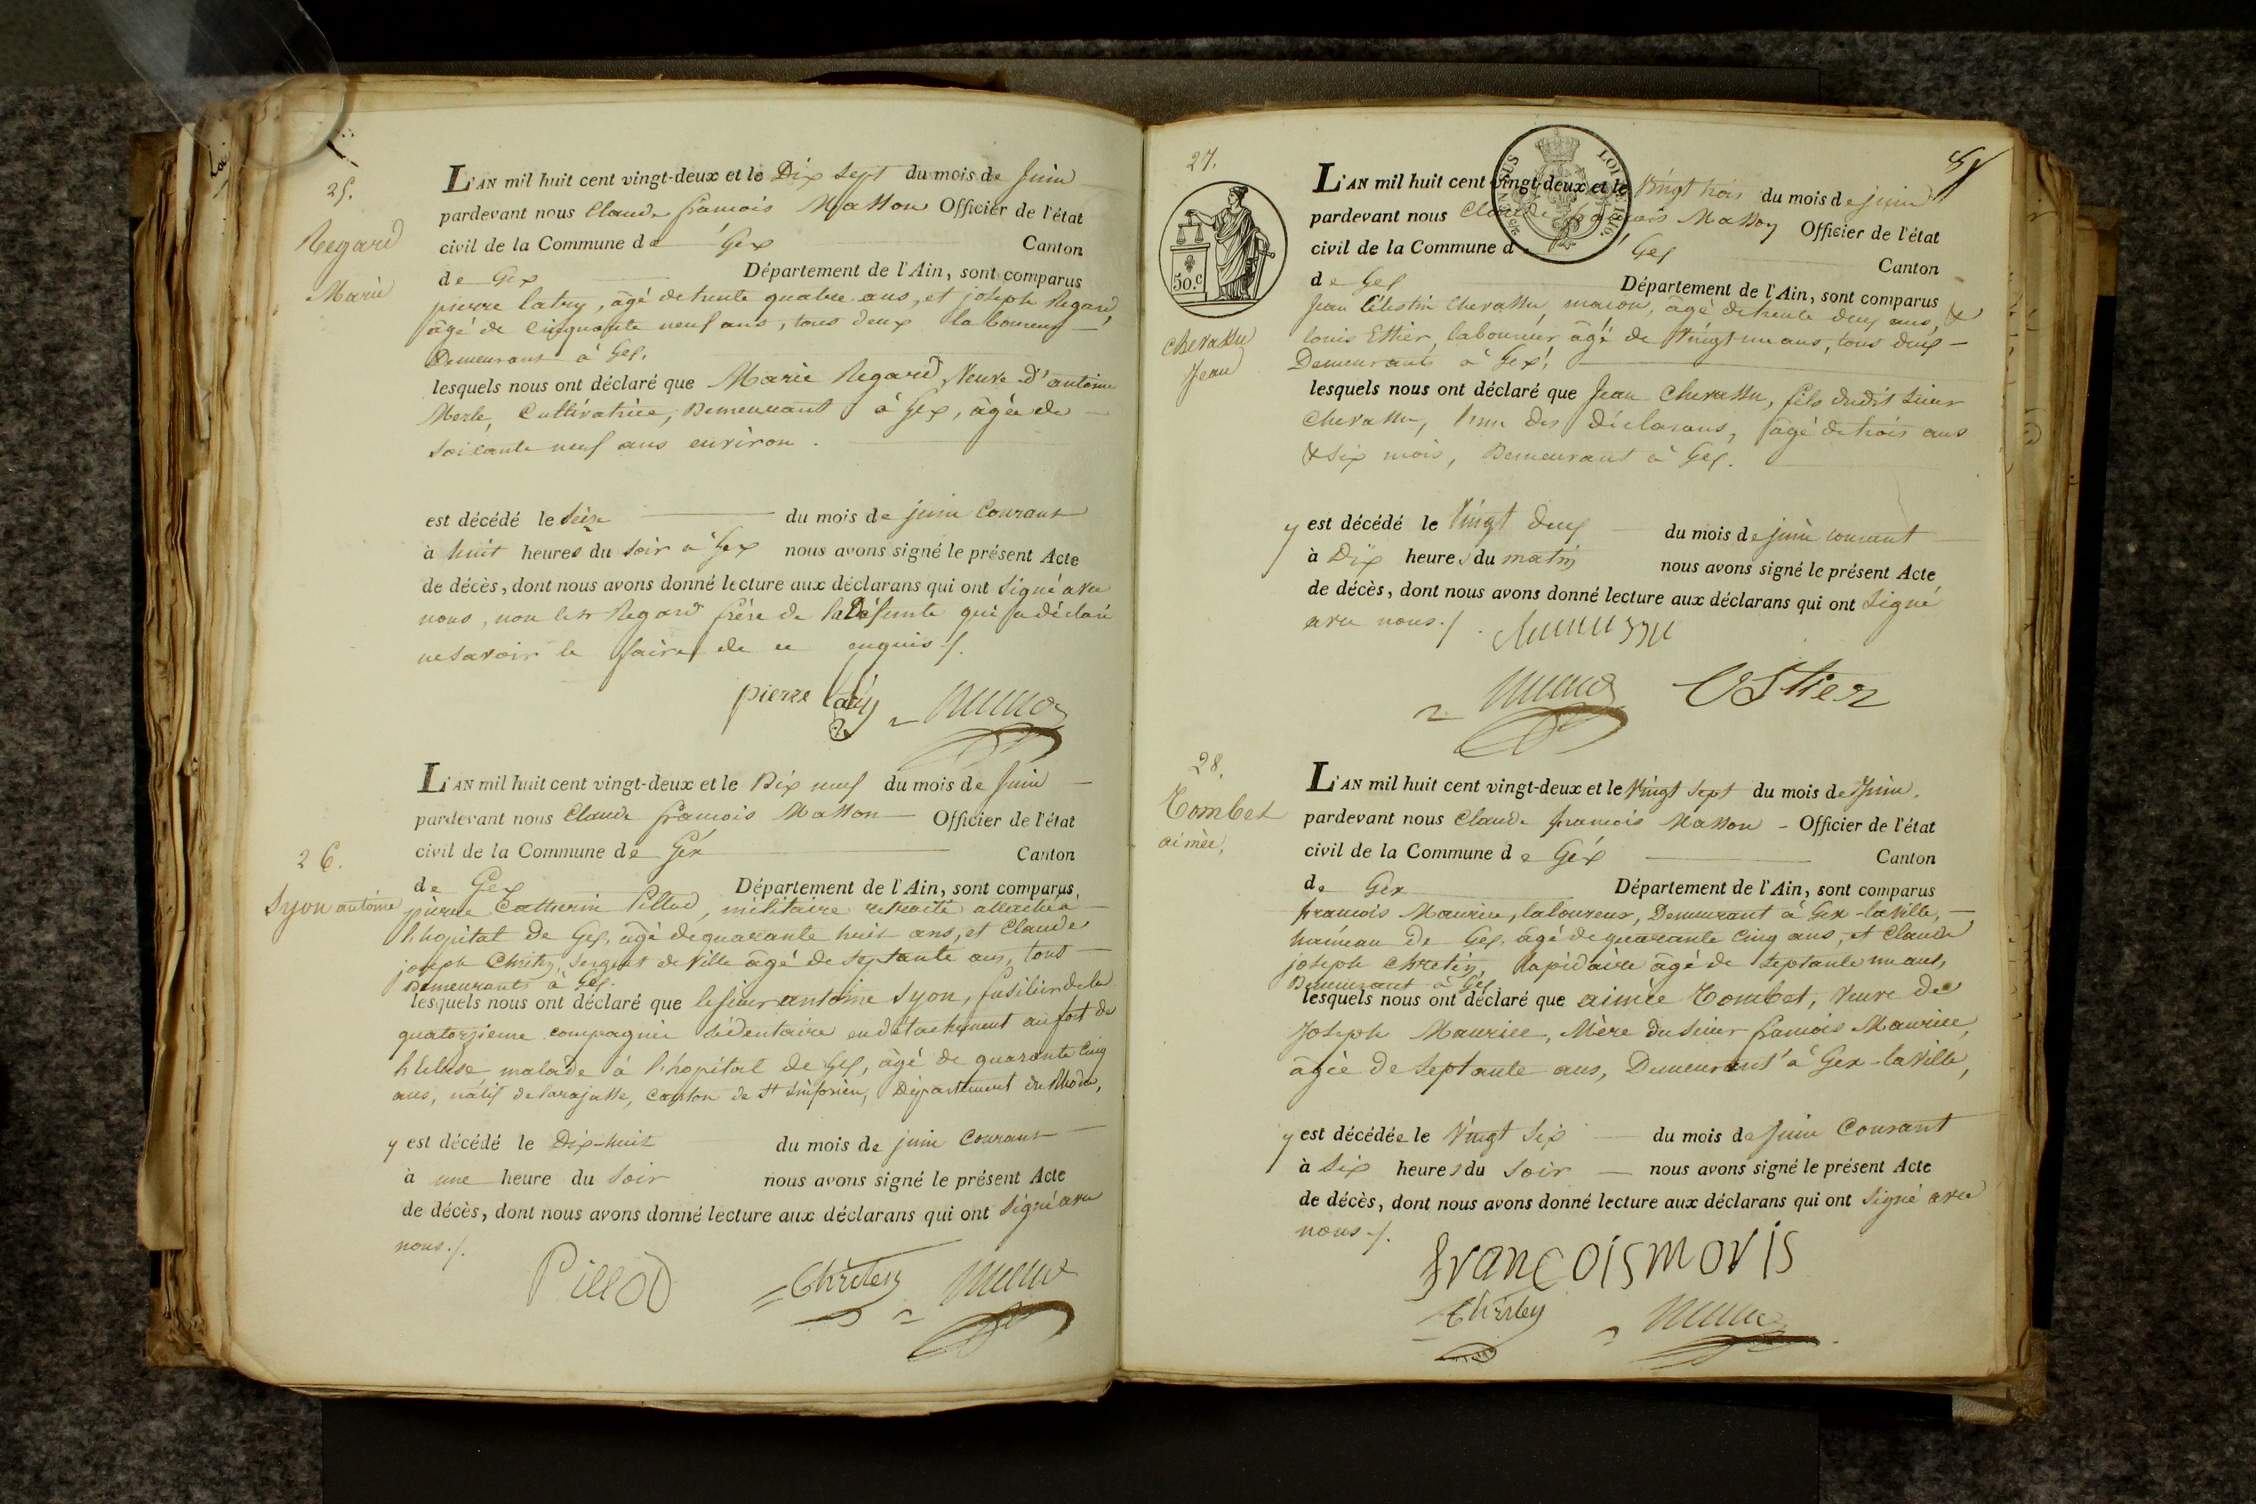 25.
Regard
Marie
L'AN mil huit cent vingt-deux et le Dix sept du mois de Juin
pardevant nous Claude francois Masson Officier de l'état
civil de la Commune de Gex Canton
de Gex Département de l'Ain, sont comparus
pierre latry, âgé de trente quatre ans, et joseph Regard,
âgé de Cinquante neuf ans, tous deux laboureurs
Demeurans à Gex.
lesquels nous ont déclaré que Marie Regard, Veuve d'antoine
Merle, Cultivatrice, Demeurant à Gex, âgée de
soixante neuf ans environ.
est décédé le seize du mois de juin Courant
à huit heures du soir à Gex nous avons signé le présent Acte
de décès, dont nous avons donné lecture aux déclarans qui ont signé avec
nous, non led Regard frère de la défunte qui a déclaré
ne savoir le faire de ce enquis ./.
pierre latry
26.
Syon antoine
L'AN mil huit cent vingt-deux et le Dix neuf du mois de Juin
pardevant nous Claude francois Masson Officier de l'état
civil de la Commune de Gex Canton
de Gex Département de l'Ain, sont comparus
pierre Catherin Pillod, militaire retraité attaché à
l'hopital de Gex, âgé de quarante huit ans, et Claude
joseph Chretin, sergent de Ville âgé de septante ans, tous
Demeurants à Gex.
lesquels nous ont déclaré que le sieur antoine Syon, fusilier de la
quatorzieme compagnie sédentaire en détachement au fort de
l'Ecluse malade à l'hopital de Gex, âgé de quarante Cinq
ans, natif de larajasse, canton de St Simforien, Département du Rhône,
y est décédé le Dix-huit du mois de juin Courant
à une heure du soir nous avons signé le présent Acte
de décès, dont nous avons donné lecture aux déclarans qui ont signé avec
nous ./.
Pillod
Chretien
27.
50.c
SUS
LOI DE 1816.
8
Chevassu
Jean
L'AN mil huit cent vingt-deux et le Vingt trois du mois de juin
pardevant nous Claude francois Masson Officier de l'état
civil de la Commune d Gex Canton
de Gex Département de l'Ain, sont comparus
Jean Célestin Chevassu, macon, âgé de trente deux ans, &
louis Estier, laboureur âgé de Vingt un ans, tous deux
Demeurants à Gex.
lesquels nous ont déclaré que Jean Chevassu, fils dudit sieur
Chevassu, l'un des Déclarans, âgé de trois ans
& six mois, Demeurant à Gex.
y est décédé le Vingt deux du mois de juin courant
à Dix heures du matin nous avons signé le présent Acte
de décès, dont nous avons donné lecture aux déclarans qui ont signé
avec nous ./.
EStier
28.
Tombet
aimée,
L'AN mil huit cent vingt-deux et le Vingt sept du mois de Juin.
pardevant nous Claude francois Masson - Officier de l'état
civil de la Commune de Gex Canton
de Gex Département de l'Ain, sont comparus
francois Maurice, laboureur, Demeurant à Gex-la Ville,
hameau de Gex, âgé de quarante Cinq ans, et Claude
joseph Chretien, lapidaire âgé de septante un ans,
Demeurant à Gex.
lesquels nous ont déclaré que aimée Tombet, Veuve de
Joseph Maurice, Mère du sieur francois Maurice,
âgée de septante ans, Demeurant à Gex-la Ville,
y est décédée le Vingt Six du mois de Juin Courant
à Six heures du soir nous avons signé le présent Acte
de décès, dont nous avons donné lecture aux déclarans qui ont signé avec
nous ./.
françoismoris
Chretien